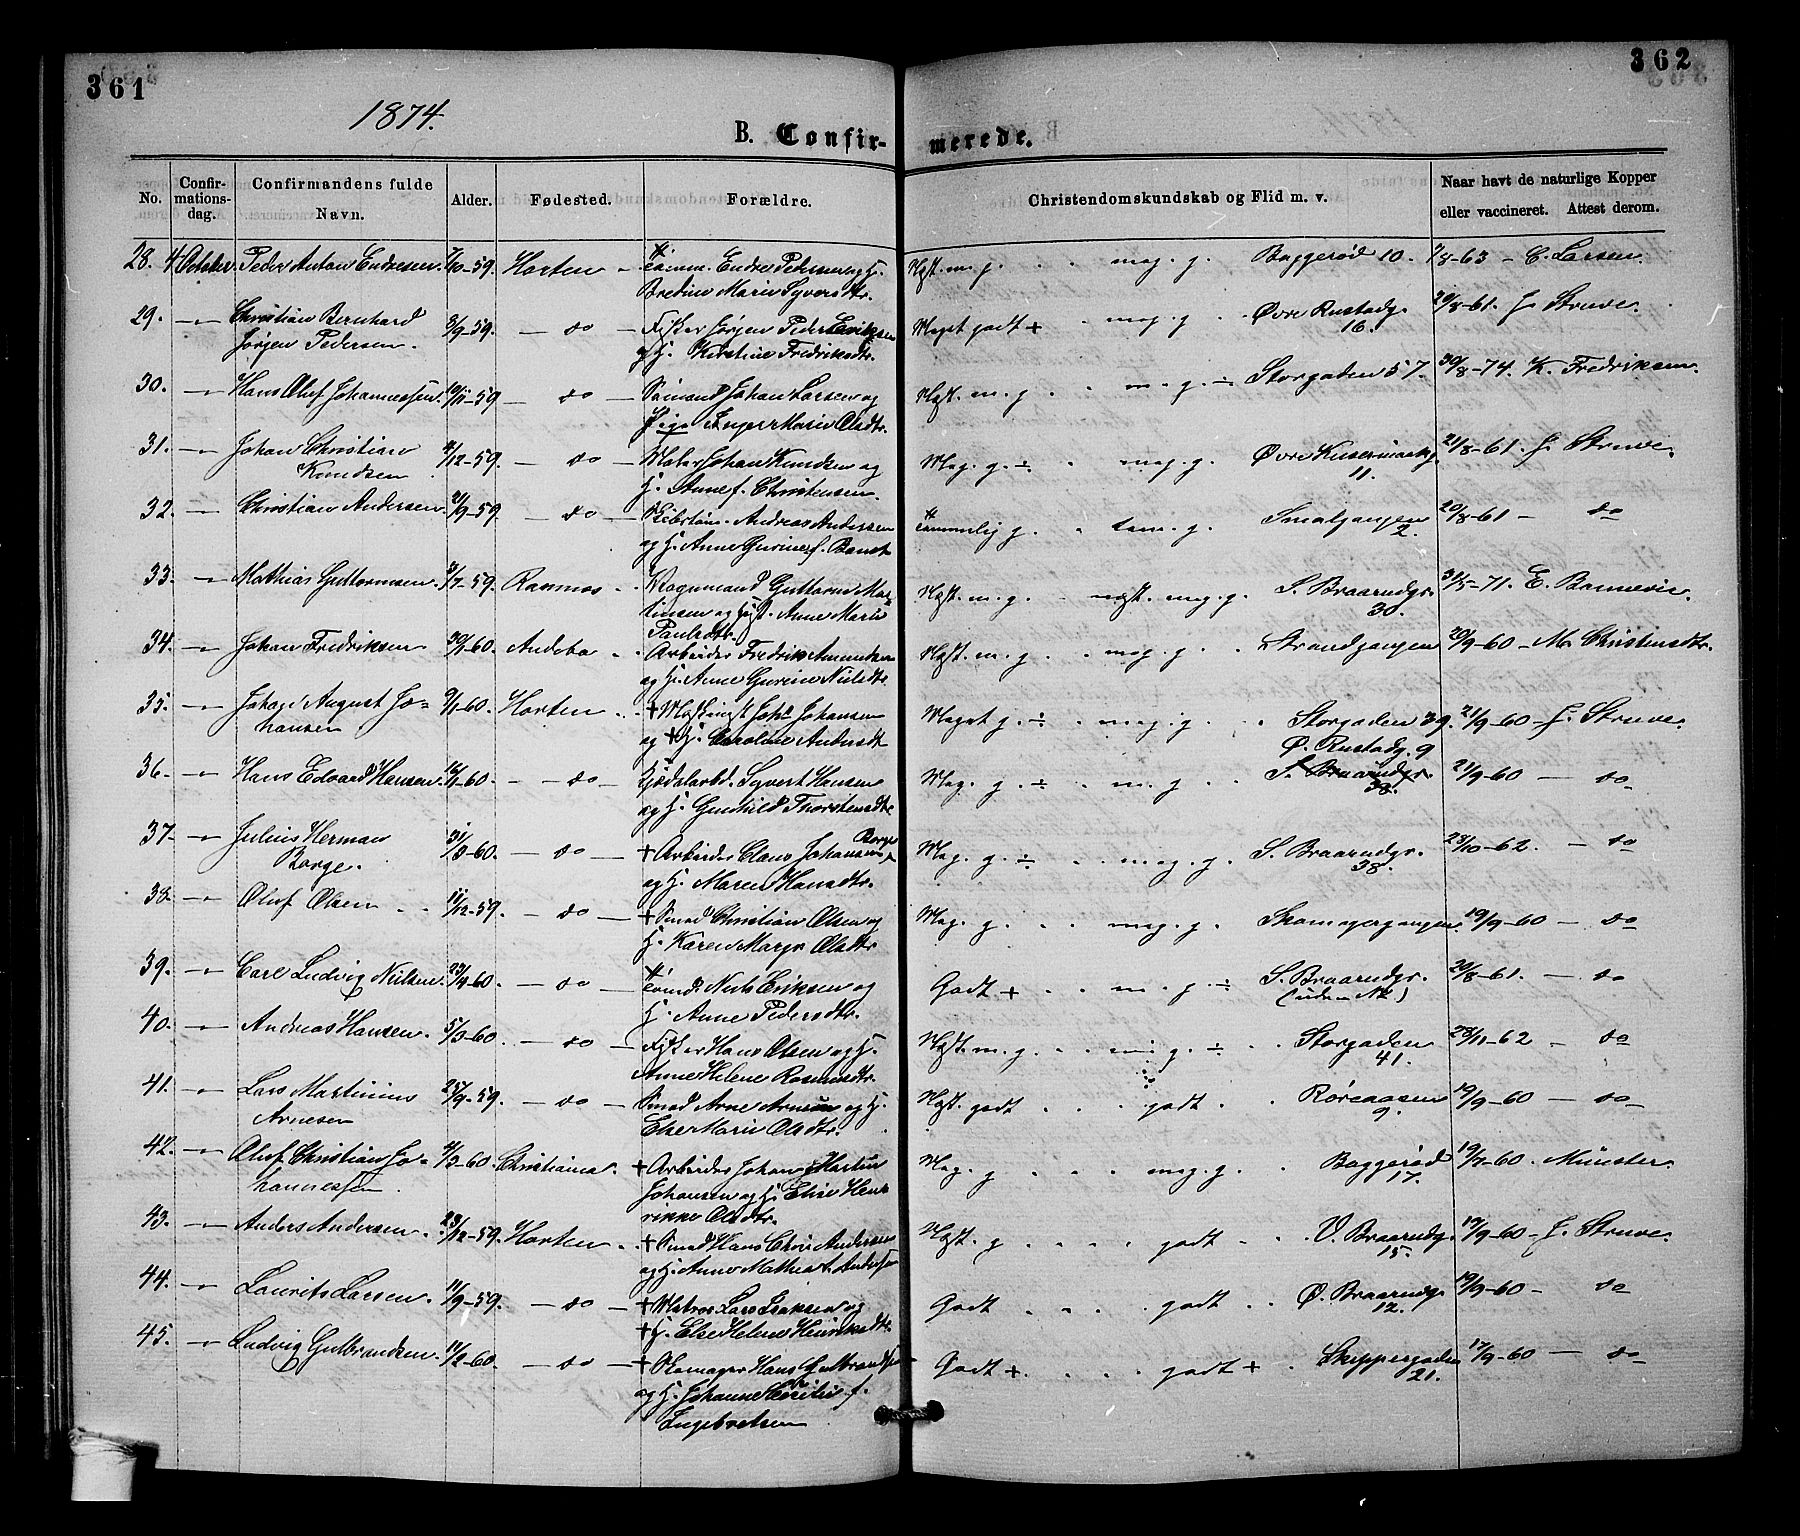 361
362
1874.
B. Confir-
merede.
No.
Confir-
mations-
dag.
Confirmandens fulde
Navn.
Alder.
Fødested.
Forældre.
Christendomskundskab og Flid m. v.
Naar havt de naturlige Kopper
eller vaccineret. Attest derom.
28. 4 October. Peder Anton Endresen. 7/10-59. Horten Tømm. Endre Pedersen og H. Næst. m. g. meg. g. Baggerød 10. 7/8-63 - C. Larsen.
Bredine Marie Syversdtr.
29. Christian Bernhard 3/9-59. do Fisker Jørgen Peder Eriksen Meget godt + meg. g. Øvre Rustadg. 29/8-61. J. Struve.
Jørgen Pedersen. og H. Kirstine Fredriksdtr. 16.
30. Hans Oluf Johannessen. 10/11-59 do Sømand Johan Larsen og Næst. m. g. m. g. ÷ Storgaden 57. 30/8-74. K. Fredriksen.
Pige Inger Marie Olsdtr.
31. Johan Christian 4/12-59. do Johan Knudsen og Meg. g. ÷ meg. g. Øvre 21/8-61. J. Struve.
Knudsen H. Anne f. Christensen. 11.
32. Christian Andersen 21/9-59. do Andreas Andersen Temmelig g. tem. g. Smalgangen 20/8-61 - do
og H. Anne Gurine f. 2.
33. Mathias Guttormsen. 3/7-59. Ramnes Guttorm Mar- Næst. m. g. næst. meg. g. S. Braarudgr. 31/5-71. E. Bannevie.
tinsen og Anne Marie 30.
Paulsdtr.
34. Johan Fredriksen 30/1-60. Andebo Arbeider Fredrik Amundsen Næst. m. g. meg. g. Strandgangen 20/9-60 - M. Christensdtr.
og H. Anne Gurine Nilsdtr.
35. Johan August Jo- 9/1-60. Horten + Johs Johansen Meget g. ÷ meg. g. Storgaden 39. 21/9-60 - J. Struve.
hansen og + H. Caroline Andersdt
Ø. Rustadg. 9
36. Hans Edvard Hansen 14/1-60. do Syvert Hansen Meg. g. ÷ meg. g. S. Braarudgr. 21/9-60 - do
og H. Gunhild Thorstensdtr. 38.
37. Julius Herman 31/3-60. do + Arbeider Claus Johansen Borge Meg. g. ÷ meg. g. S. Braarudgr. 28/10-62. - do
Borge. og H. Maren Hansdtr. 38.
38. Oluf Olsen 11/12-59. do + Smed Christian Olsen og Meg. g. meg. g. Skomagergangen 19/9-60 - do
H. Karen Margr. Olsdtr.
39. Carl Ludvig Nielsen. 23/4-60. do Tømd. Niels Eriksen og Godt + m. g. ÷ S. Braarudgr. 20/8-61. - do
H. Anne Pedersdtr. (uden No)
40. Andreas Hansen. 5/3-60. do Fisker Hans Olsen og H. Næst. m. g. m. g. ÷ Storgaden 28/11-62 - do
Anne Helene Rasmusdtr. 41.
41. Lars Martinius 25/9-59. do Smed Arne Arnesen og H. Næst. godt godt Røreaasen 19/9-60 - do
Arnesen Else Marie Olsdtr. 9.
42. Oluf Christian Jo- 4/3-60. Christiania. + Arbeider Johan Martin Meg. g meg. g. Baggerød 19/7-60. Münster.
hannessen Johansen og H. Elise Hen- 17.
rikke Olsdtr.
43. Anders Andersen. 23/12-59. Horten + Smed Hans Chr. Andersen Næst. g godt V. Braarudg. 17/9-60 - J. Struve.
og H. Anne Mathea f. Andersen 15.
44. Laurits Larsen. 11/9-59. do + Matros Lars Isaksen og Godt godt Ø. Braarudg. 19/9-60 - do
+ H. Else Helene Henriksdtr. 12.
45. Ludvig Gulbrandsen. 11/2-60. do + Skomager Hans Gulbrandsen Godt + godt + Skippergaden 17/9-60 - do
og H. Johanne Cecilie f. 21.
Engebretsen